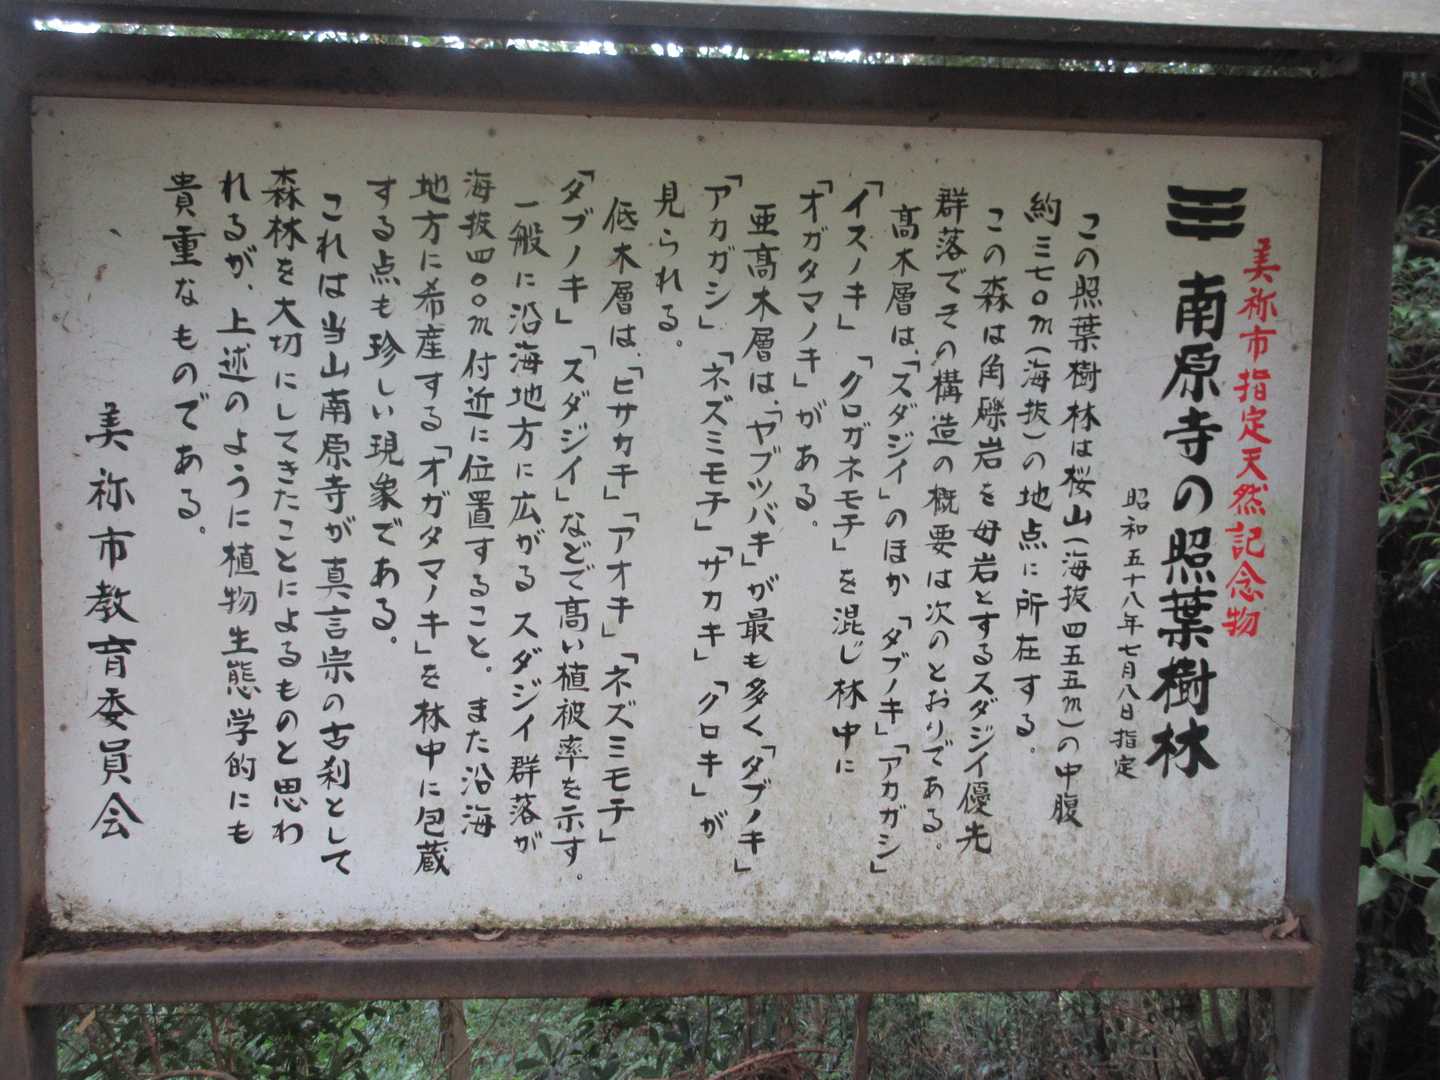 美祢市指定天然記念物
南原寺の照葉樹林
昭和五十八年七月八日指定
この照葉樹林は桜山(海抜四五五m)の中腹
約三七〇m(海抜)の地点に所在する。
この森は角礫岩を母岩とするスダジイ優先
群落でその構造の概要は次のとおりである。
髙木層は、「スダジイ」のほか「タブノキ」「アカガシ」
「イスノキ」「クロガネモチ」を混じ林中に
「オガタマノキ」がある。
亜髙木層は、「ヤブツバキ」が最も多く「タブノキ」
「アカガシ」「ネズミモチ」「サカキ」「クロキ」が
見られる。
低木層は、「ヒサカキ」「アオキ」「ネズミモチ」
「タブノキ」「スダジイ」などで髙い植被率を示す。
一般に沿海地方に広がるスダジイ群落が
海抜四〇〇m付近に位置すること。また沿海
地方に希産する「オガタマノキ」を林中に包蔵
する点も珍しい現象である。
これは当山南原寺が真言宗の古刹として
森林を大切にしてきたことによるものと思わ
れるが、上述のように植物生態学的にも
貴重なものである。
美祢市教育委員会